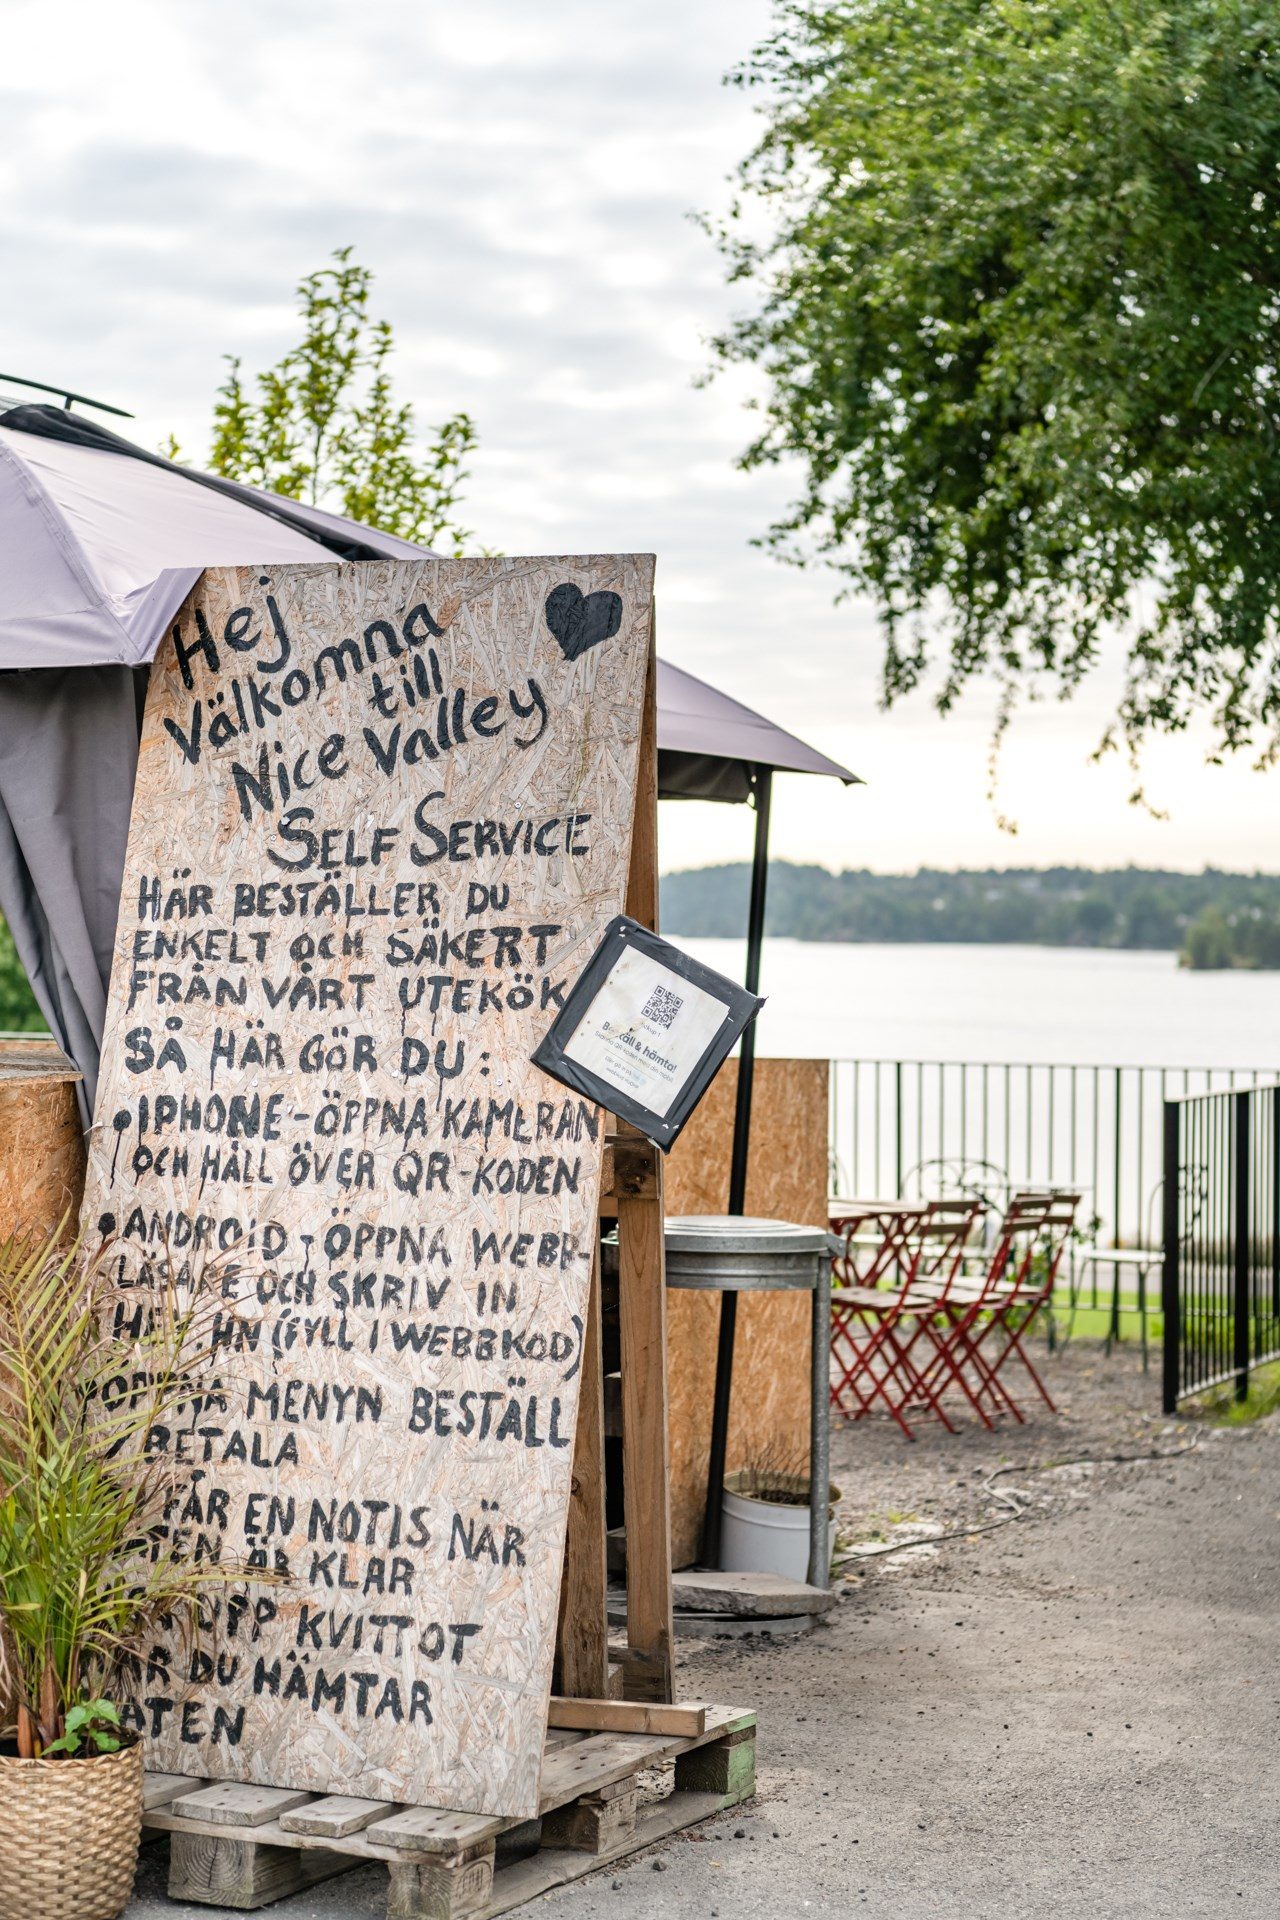 Hej
Välkomna
till
Nice Valley
SELF SERVICE
HÄR BESTÄLLER DU
ENKELT OCH SÄKERT
FRÅN VÅRT UTEKÖK
SÅ HÄR GÖR DU:
•IPHONE-ÖPPNA KAMERAN
OCH HÅLL ÖVER QR-KODEN
•ANDROID-ÖPPNA WEBB-
OCH SKRIV IN
(FYLL I WEBBKOD)
MENYN BESTÄLL
BETALA
FÅR EN NOTIS NÄR
ÄR KLAR
UPP KVITTOT
DU HÄMTAR
& hämta!